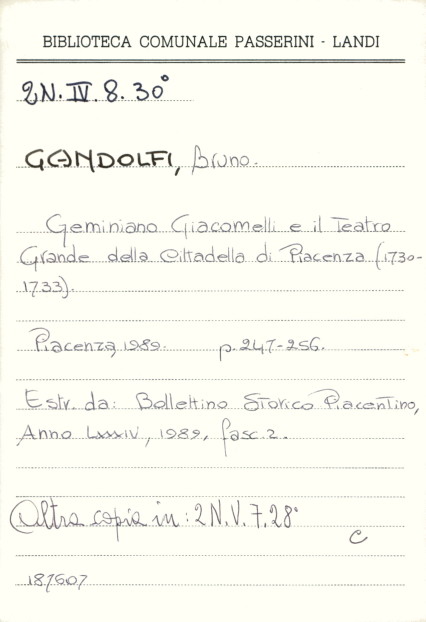 BIBLIOTECA COMUNALE PASSERINI - LANDI
2N.IV.8.30°
GANDOLFI, Bruno.
Geminiano Giacomelli e il Teatro
Grande della Cittadella di Piacenza (1730-
1733).
Piacenza, 1989. p.247-256.
Estr. da: Bollettino Storico Piacentino,
Anno LXXXIV, 1989, fasc.2.
(Altra copia in: 2N.V.7.28°
C
187607